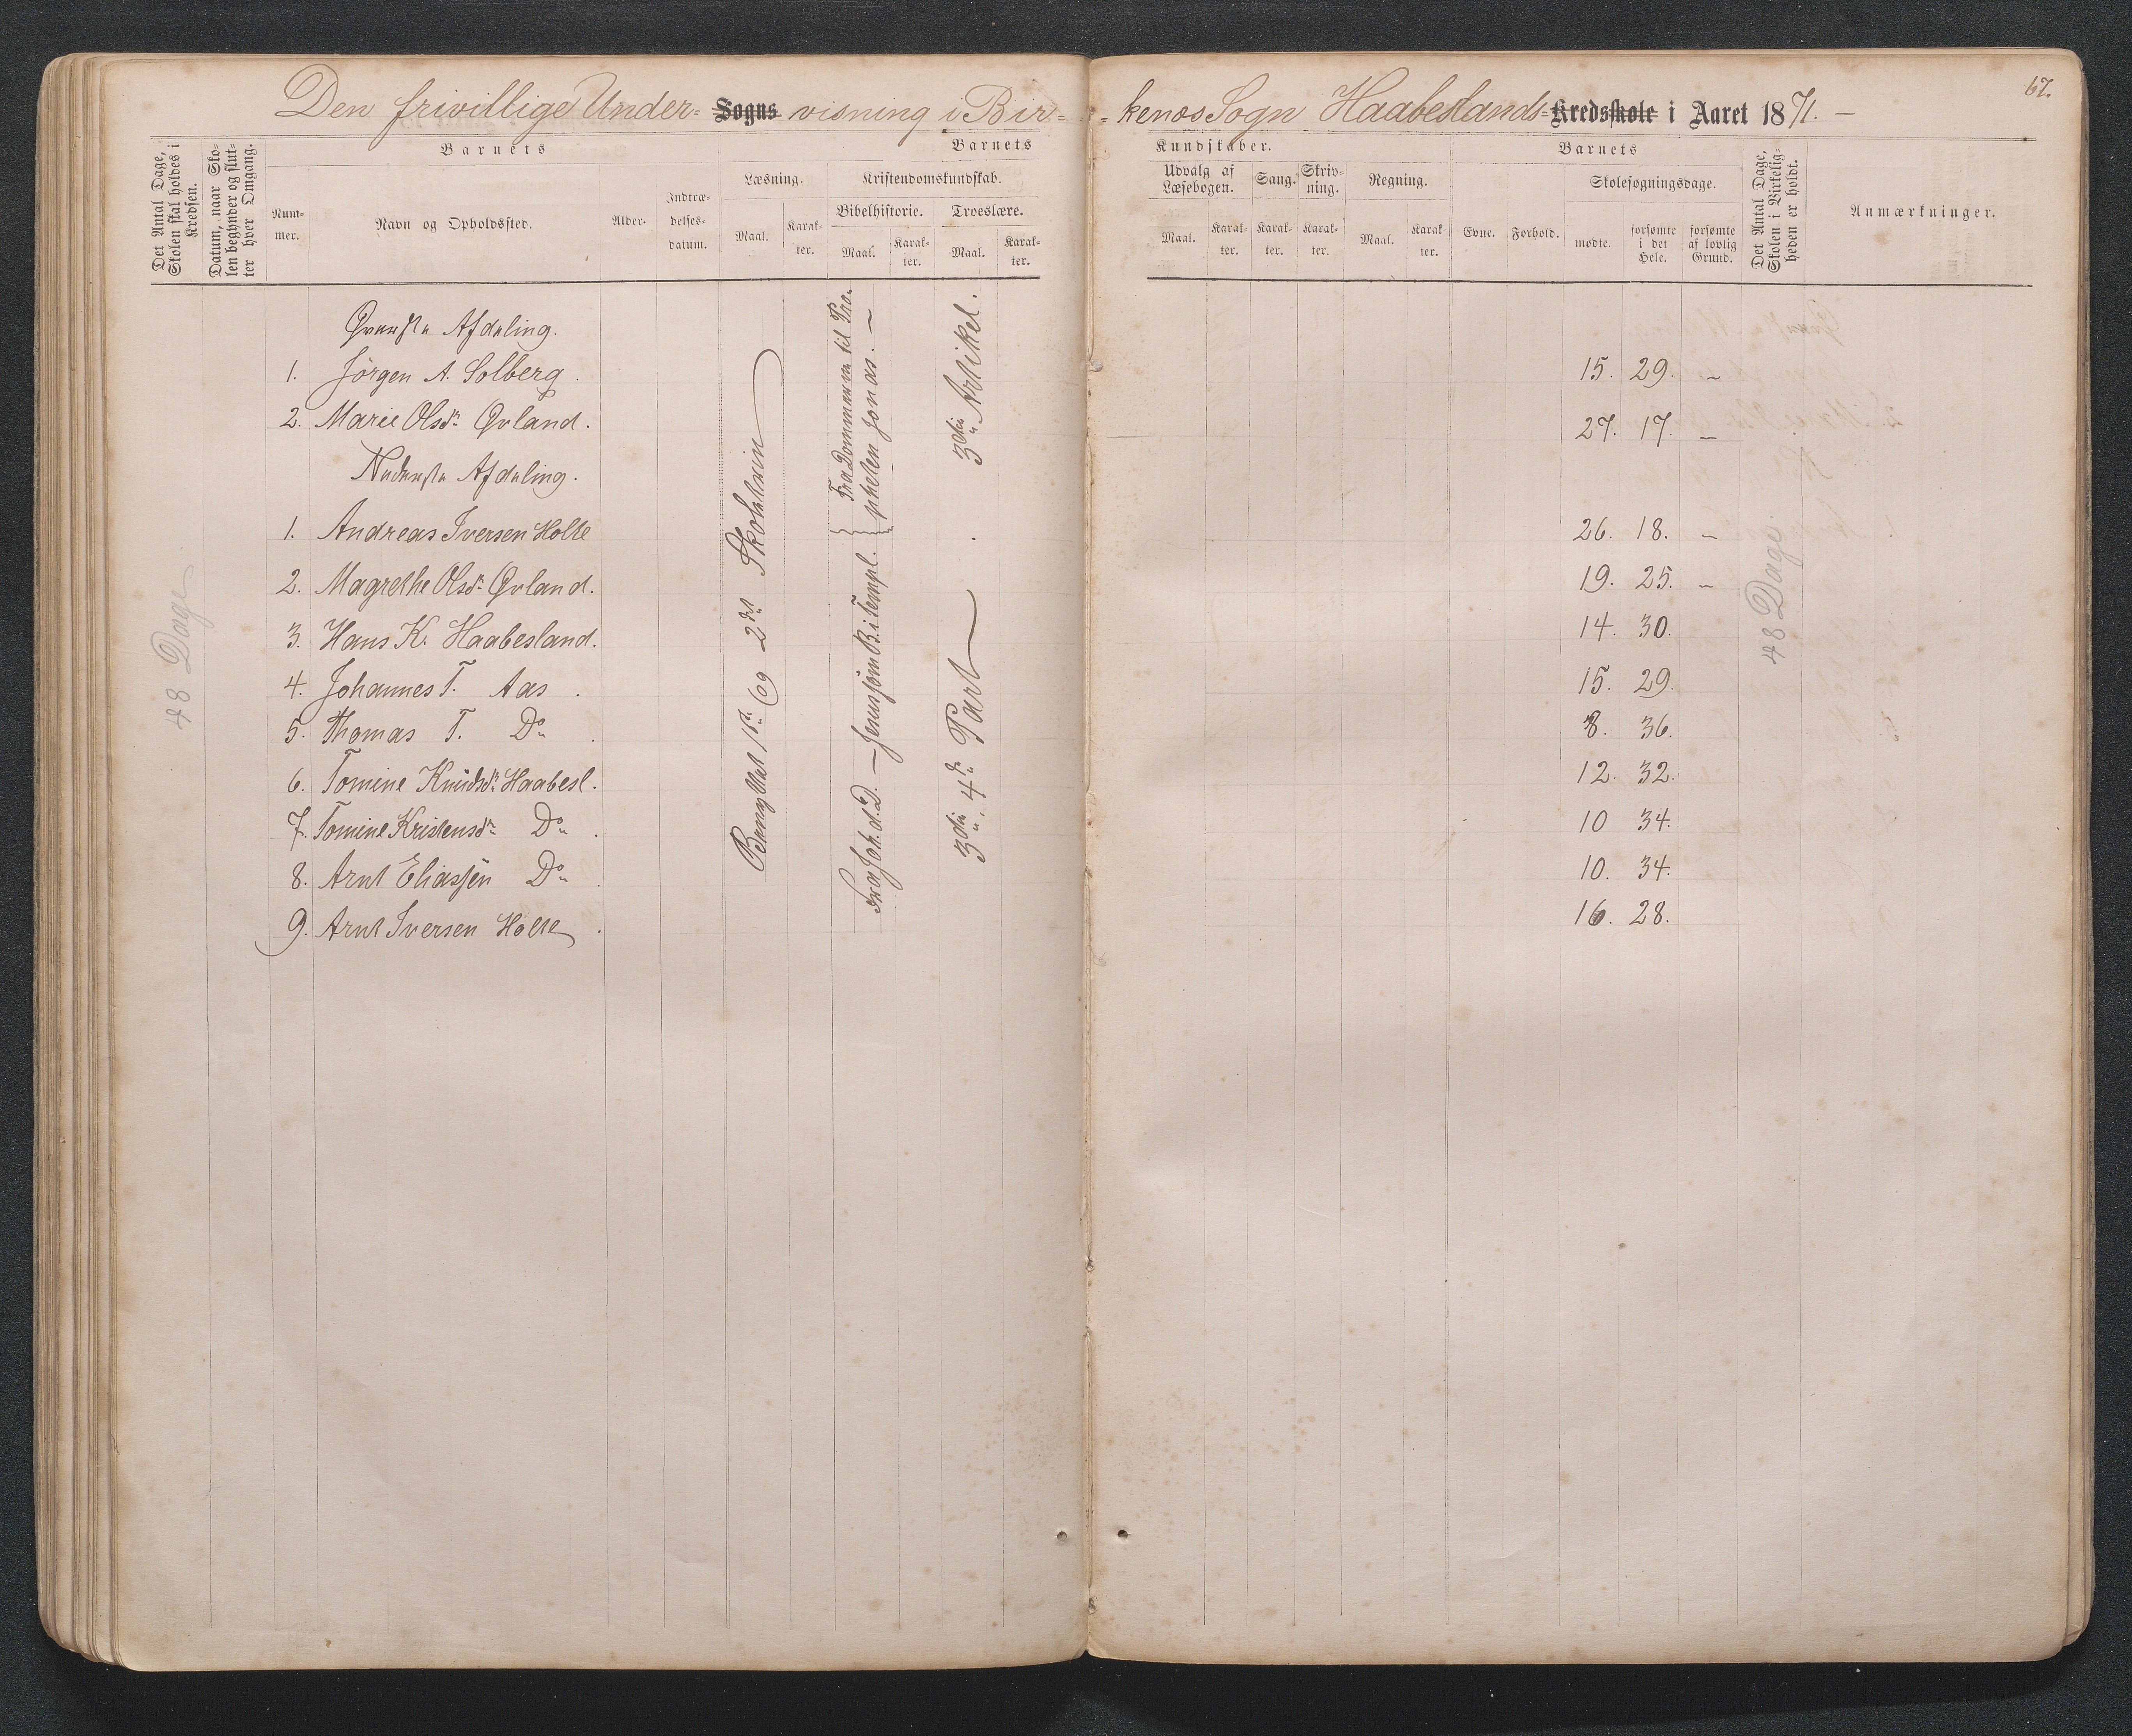 Den frivillige Under- Sogns visning i Bir- -kenæs Sogn Haabeslands- Kredsskole i Aaret 1871. —
67.
Det Antal Dage, Skolen skal holdes i Kredsen.
Datum, naar Skolen begynder og slutter hver Omgang.
Barnets
Nummer.
Navn og Opholdssted.
Alder.
Indtrædelsesdatum.
Barnets
Læsning.
Maal.
Karakter.
Kristendomskundskab.
Bibelhistorie.
Maal.
Karakter.
Troeslære.
Maal.
Karakter.
Kundskaber.
Udvalg af Læsebogen.
Maal.
Karakter.
Sang.
Karakter.
Skrivning.
Karakter.
Regning.
Maal.
Karakter.
Barnets
Evne.
Forhold.
Skolesøgningsdage.
mødte.
forsømte i det Hele.
forsømte af lovlig Grund.
Det Antal Dage, Skolen i Virkeligheden er holdt.
Anmærkninger.
Øverste Afdeling.
1. Jörgen A. Solberg. 15. 29. –
2. Marie Olsdr. Øvland. 27. 17. –
Nederste Afdeling.
1. Andreas Iversen Holte 26. 18. –
2. Magrethe Olsdr. Øvland. 19. 25. –
3. Hans K. Haabesland. 14. 30.
4. Johannes T. Aas. 15. 29.
5. Thomas T. Do. 8. 36.
6. Tomine Knudsdr. Haabesl. 12. 32.
7. Tomine Kristensdr. Do. 10 34.
8. Arnt Eliassen Do. 10. 34.
9. Arnt Iversen Holte. 16. 28.
48 Dage
Benyttet 1ste og 2det Skoletrin
Fra Joh. d. D. — Jesus som B. i Templ.
Fra Dommerne til Pro-
pheten Jonas. —
3die Artikel.
3die, 4de Part
48 Dage.